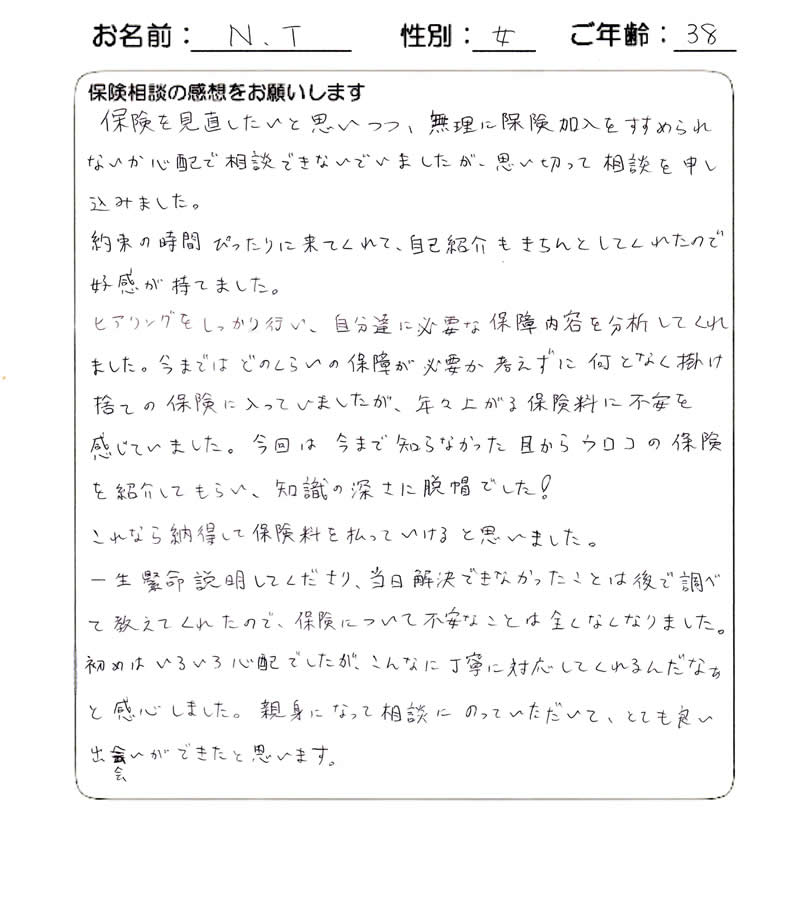 お名前：N.T 性別：女 ご年齢：38
保険相談の感想をお願いします
保険を見直したいと思いつつ、無理に保険加入をすすめられ
ないか心配で相談できないでいましたが、思い切って相談を申し
込みました。
約束の時間ぴったりに来てくれて、自己紹介もきちんとしてくれたので
好感が持てました。
ヒアリングをしっかり行い、自分達に必要な保障内容を分析してくれ
ました。今まではどのくらいの保障が必要か考えずに何となく掛け
捨ての保険に入っていましたが、年々上がる保険料に不安を
感じていました。今回は今まで知らなかった目からウロコの保険
を紹介してもらい、知識の深さに脱帽でした！
これなら納得して保険料を払っていけると思いました。
一生緊命説明してくださり、当日解決できなかったことは後で調べ
て教えてくれたので、保険について不安なことは全くなくなりました。
初めはいろいろ心配でしたが、こんなに丁寧に対応してくれるんだなぁ
と感心しました。親身になって相談にのっていただいて、とても良い
出会いができたと思います。
会